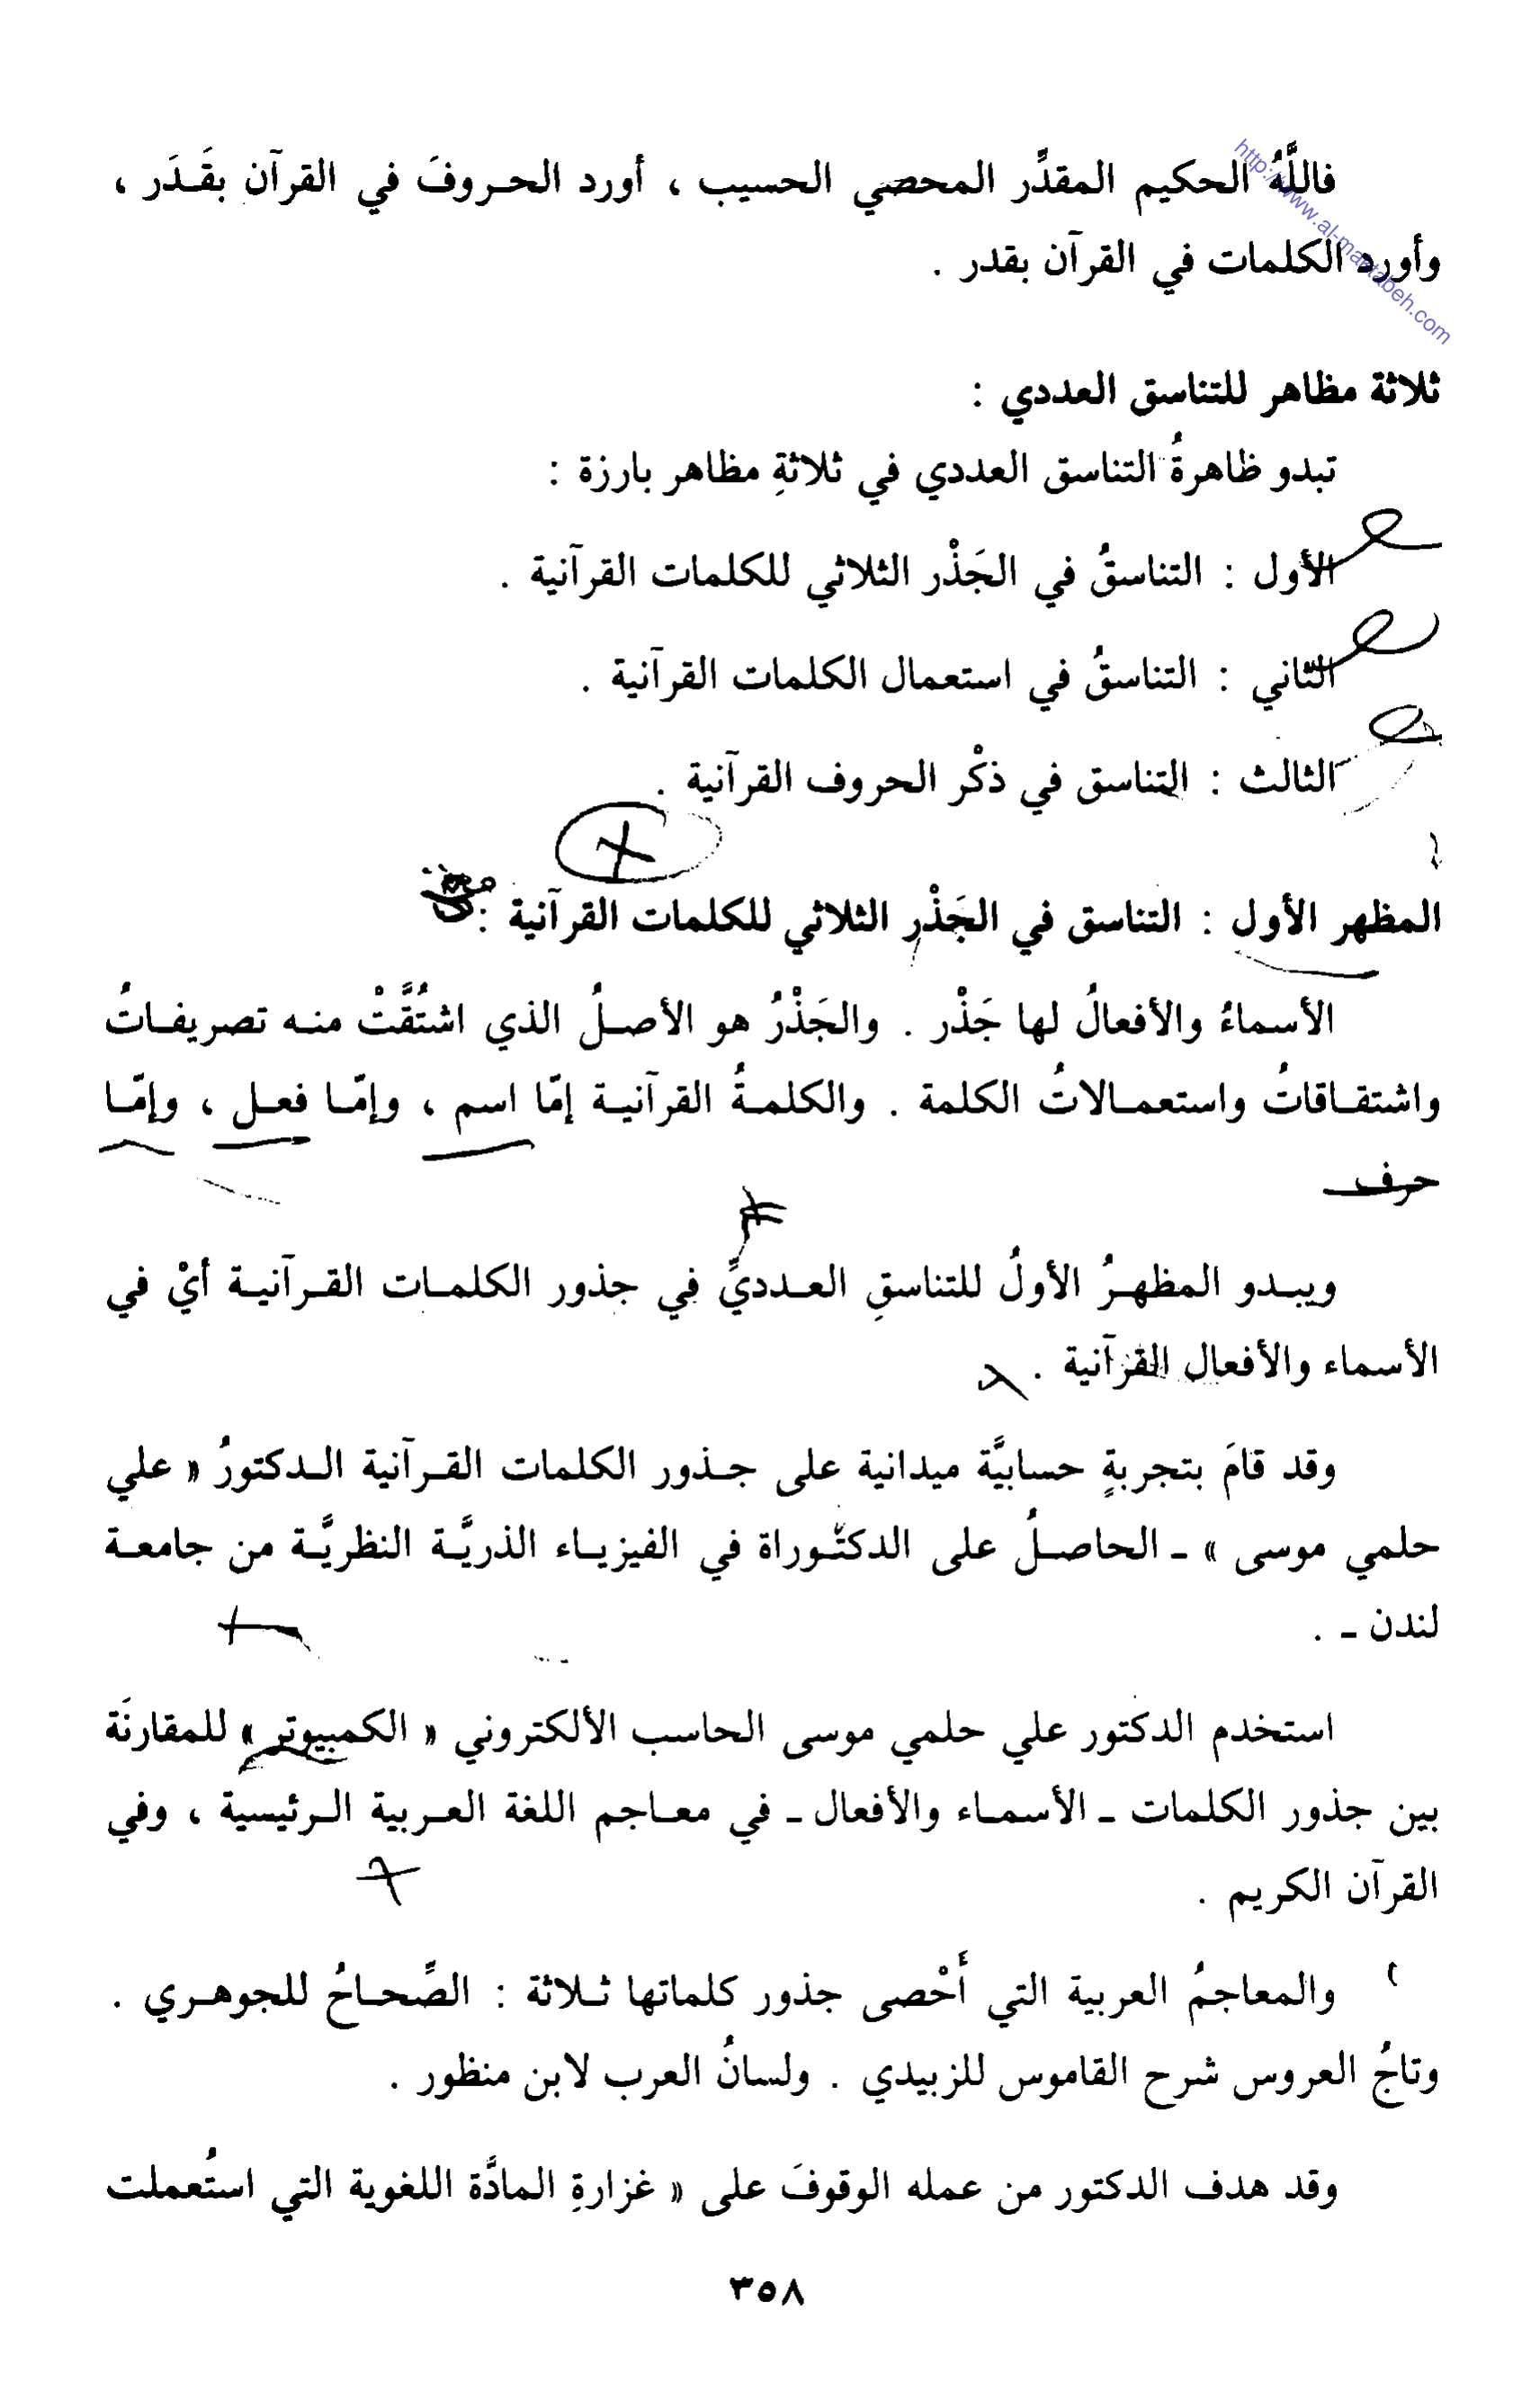 http://www.al-maktabeh.com
فاللَّهُ الحكيم المقدِّر المحصي الحسيب ، أورد الحروفَ في القرآن بقَدَر ،
وأورد الكلمات في القرآن بقدر .
ثلاثة مظاهر للتناسق العددي :
تبدو ظاهرةُ التناسق العددي في ثلاثةِ مظاهر بارزة :
الأول : التناسقُ في الجَذْر الثلاثي للكلمات القرآنية .
الثاني : التناسقُ في استعمال الكلمات القرآنية .
الثالث : التناسق في ذكْر الحروف القرآنية .
المظهر الأول : التناسق في الجَذْر الثلاثي للكلمات القرآنية :
الأسماءُ والأفعالُ لها جَذْر . والجَذْرُ هو الأصلُ الذي اشتُقَّتْ منه تصريفاتُ
واشتقاقاتُ واستعمالاتُ الكلمة . والكلمةُ القرآنية إمّا اسم ، وإمّا فعل ، وإمّا
حرف
ويبدو المظهرُ الأولُ للتناسقِ العدديِّ في جذور الكلمات القرآنية أيْ في
الأسماء والأفعال القرآنية .
وقد قامَ بتجربةٍ حسابيَّة ميدانية على جذور الكلمات القرآنية الدكتورُ « علي
حلمي موسى » ـ الحاصلُ على الدكتوراة في الفيزياء الذريَّة النظريَّة من جامعة
لندن ـ .
استخدم الدكتور علي حلمي موسى الحاسب الألكتروني « الكمبيوتر » للمقارنَة
بين جذور الكلمات ـ الأسماء والأفعال ـ في معاجم اللغة العربية الرئيسية ، وفي
القرآن الكريم .
والمعاجمُ العربية التي أَحْصى جذور كلماتها ثلاثة : الصِّحاحُ للجوهري .
وتاجُ العروس شرح القاموس للزبيدي . ولسانُ العرب لابن منظور .
وقد هدف الدكتور من عمله الوقوفَ على « غزارةِ المادَّة اللغوية التي استُعملت
٣٥٨